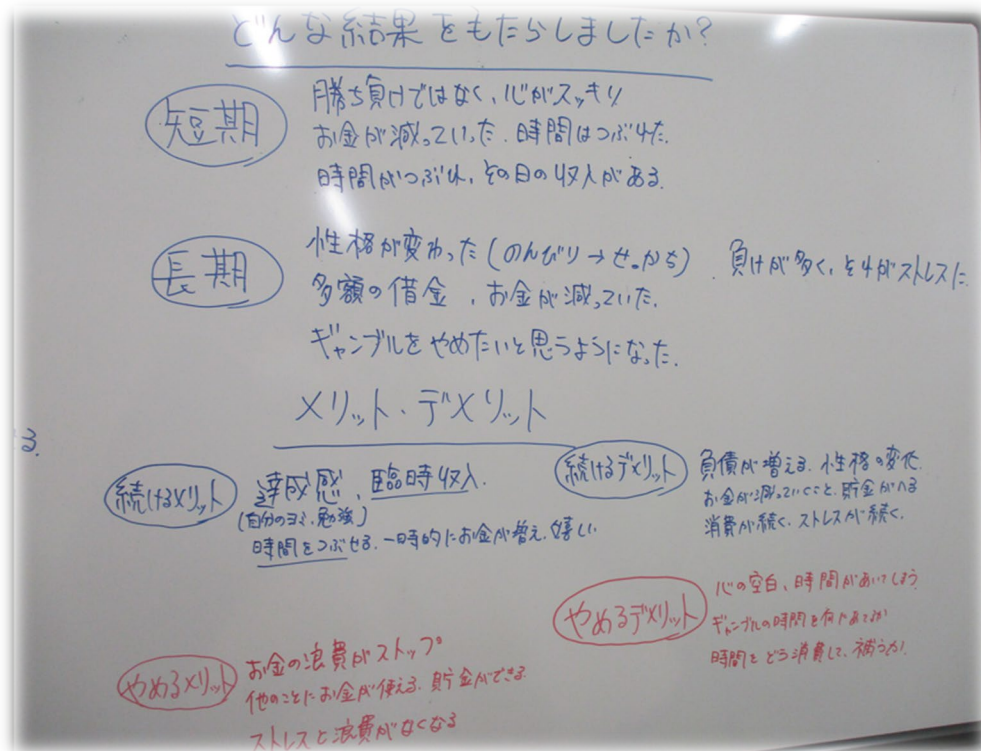 どんな結果をもたらしましたか?
短期
勝ち負けではなく、心がスッキリ
お金が減っていった、時間はつぶれた。
時間がつぶれ、その日の収入がある。
長期
性格が変わった(のんびり→せっかち)、負けが多く、それがストレスだ
多額の借金、お金が減っていた。
ギャンブルをやめたいと思うようになった。
メリット・デメリット
る。
続けるメリット
達成感、臨時収入。
(自分のヨミ、勉強)
時間をつぶせる、一時的にお金が増え、嬉しい
続けるデメリット
負債が増える、性格の変化、
お金が減っていくこと、貯金がへる
消費が続く、ストレスが続く。
やめるデメリット
心の空白、時間があいてしまう。
ギャンブルの時間を何にあてるか
時間をどう消費して、補うか。
やめるメリット
お金の浪費がストップ
他のことにお金が使える、貯金ができる
ストレスと浪費がなくなる